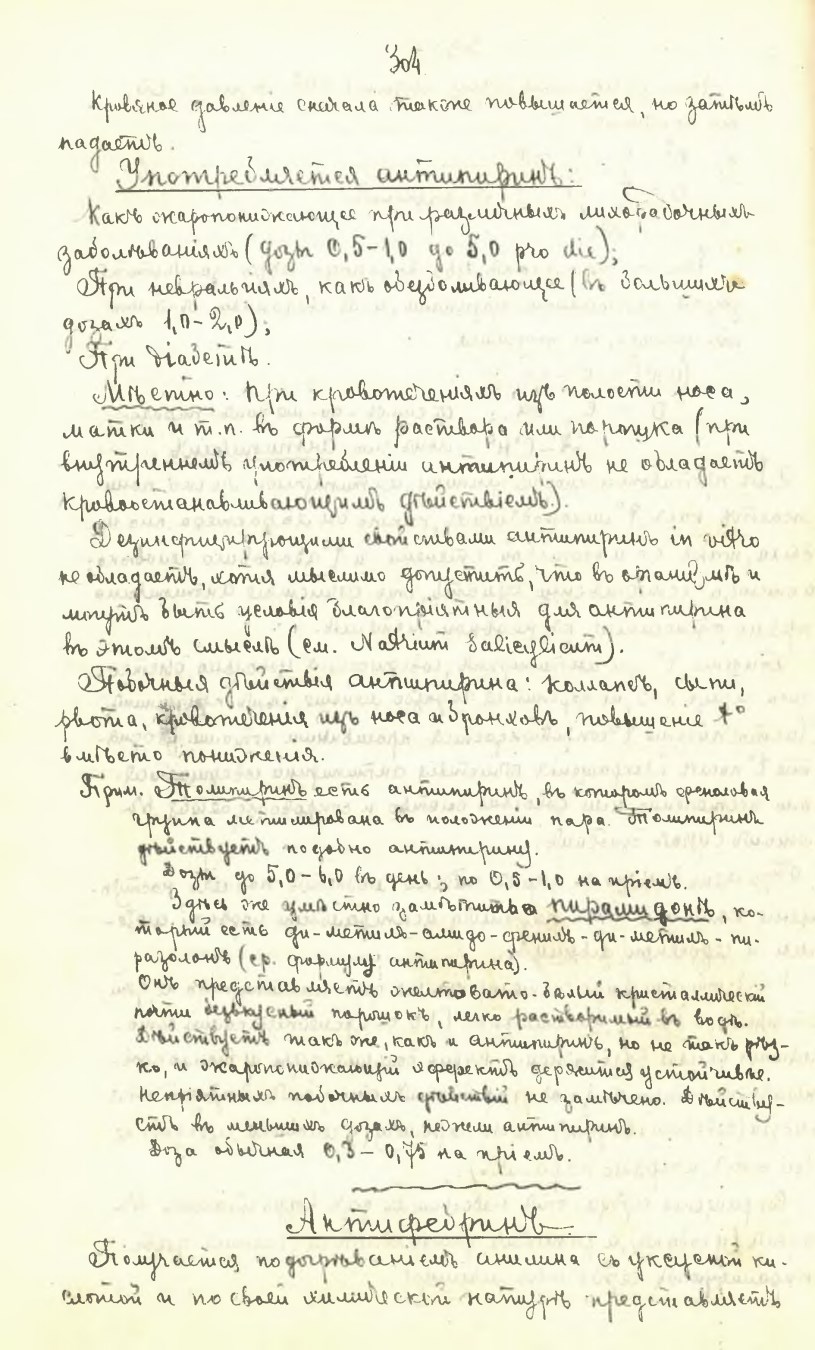 304
Кровяное давленіе сначала также повышается, но затѣмъ
падаетъ.
Употребляется антипиринъ:
Какъ жаропонижающее при различныхъ лихорадочныхъ
заболѣваніяхъ (дозы 0,5-1,0 до 5,0 pro die);
При невральгіяхъ, какъ обезболивающее (въ большихъ
дозахъ 1,0-2,0);
При діабетѣ.
Мѣстно: При кровотеченіяхъ изъ полости носа,
матки и т.п. въ формѣ раствора или порошка (при
внутреннемъ употребленіи антипиринъ не обладаетъ
кровоостанавливающимъ дѣйствіемъ).
Дезинфицирующими свойствами антипиринъ in vitro
не обладаетъ, хотя мыслимо допустить, что въ организмѣ и
могутъ быть условія благопріятныя для антипирина
въ этомъ смыслѣ (см. Natrium Salicylicum).
Побочныя дѣйствія антипирина: коллапсъ, сыпи,
рвота, кровотеченія изъ носа и бронховъ, повышеніе t°
вмѣсто пониженія.
Прим. Толипиринъ есть антипиринъ, въ которомъ феноловая
группа метилирована въ положеніи пара. Толипиринъ
дѣйствуетъ подобно антипирину.
Дозы до 5,0-6,0 въ день; по 0,5-1,0 на пріемъ.
Здѣсь же умѣстно замѣтить о пирамидонѣ, ко-
торый есть ди-метилъ-амидо-фенилъ-ди-метилъ-пи-
разолонъ (ср. формулу антипирина).
Онъ представляетъ желтовато-бѣлый кристаллическій
почти безвкусный порошокъ, легко растворимый въ водѣ.
Дѣйствуетъ такъ же, какъ и антипиринъ, но не такъ рѣз-
ко, и жаропонижающій эффектъ держится устойчивѣе.
Непріятныхъ побочныхъ дѣйствій не замѣчено. Дѣйству-
етъ въ меньшихъ дозахъ, нежели антипиринъ.
Доза обычная 0,3-0,75 на пріемъ.
Антифебринъ.
Получается подогрѣваніемъ анилина съ уксусной ки-
слотой и по своей химической натурѣ представляетъ